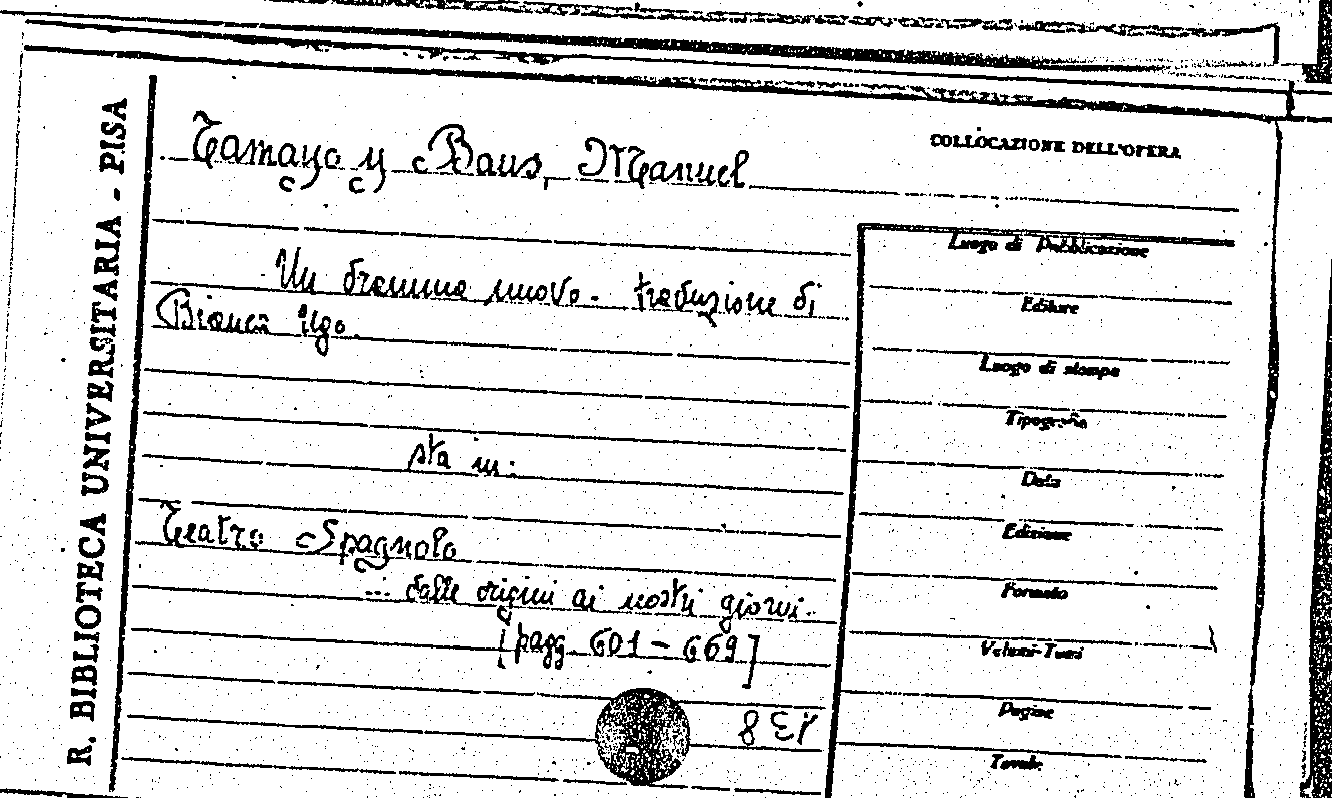 R. BIBLIOTECA UNIVERSITARIA - PISA
Tamayo y Baus, Manuel
COLLOCAZIONE DELL'OPERA
Un dramma nuovo. traduzione di
Bianchi Ugo.
sta in:
Teatro Spagnolo
... dalle origini ai nostri giorni.
[pagg. 601 - 669]
Luogo di Pubblicazione
Editore
Luogo di stampa
Tipografia
Data
Edizione
Formato
Volumi-Tomi
Pagine
Tavole